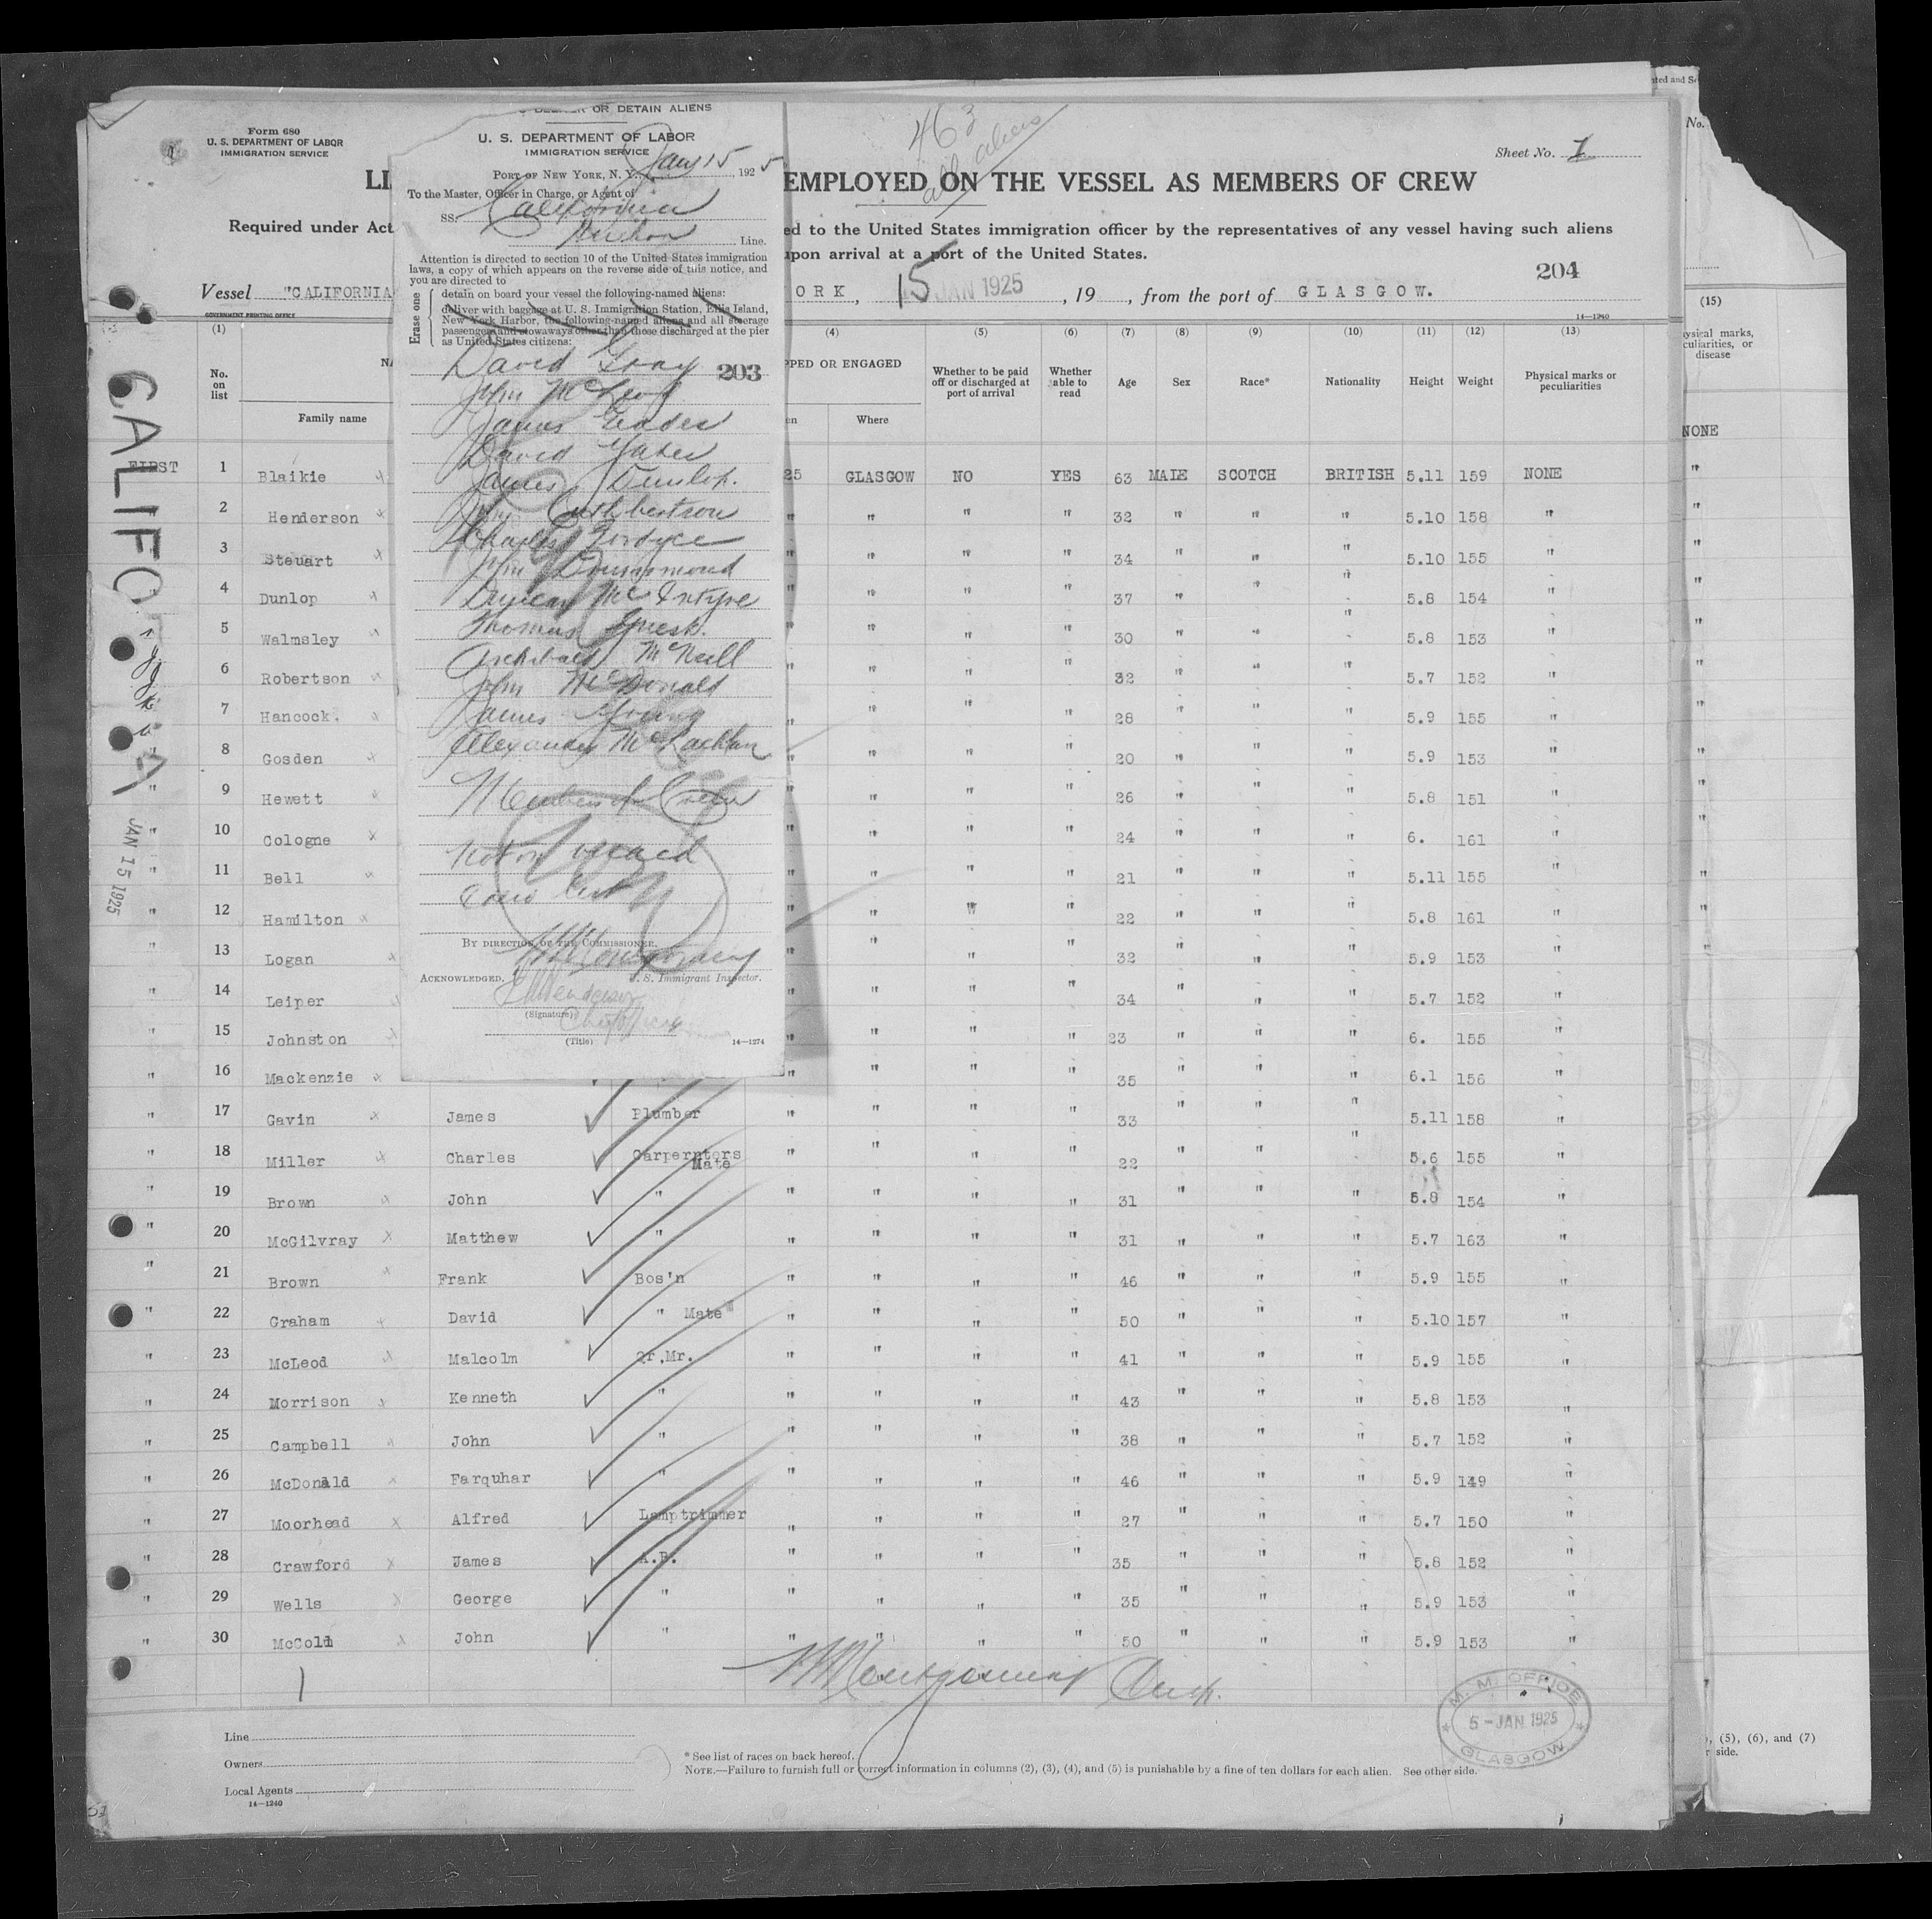 Form 680
U. S. DEPARTMENT OF LABOR
IMMIGRATION SERVICE
LI
Required under Act
Vessel "CALIFORNIA
GOVERNMENT PRINTING OFFICE
OR DETAIN ALIENS
U. S. DEPARTMENT OF LABOR
IMMIGRATION SERVICE
PORT OF NEW YORK, N. Y. Jany 15, 1925
To the Master, Officer in Charge, or Agent of
SS. California
Anchor Line.
Attention is directed to section 10 of the United States immigration
laws, a copy of which appears on the reverse side of this notice, and
you are directed to
Erase one
detain on board your vessel the following-named aliens:
deliver with baggage at U. S. Immigration Station, Ellis Island,
New York Harbor, the following-named aliens and all steerage
passengers and stowaways other than those discharged at the pier
as United States citizens:
203
David Gray
John McLeod
James Eades
David Yates
James Dunlop.
John Cuthbertson
Charles Fordyce
John Drummond
Duncan McIntyre
Thomas
Archibald McNeill
John McDonald
James Young
Alexander McLachlan
Members of Crew
Not on board
BY DIRECTION OF THE COMMISSIONER.
Montgomery
U. S. Immigrant Inspector.
ACKNOWLEDGED.
Henderson
(Signature)
Chief Officer
(Title)
14—1274
463
all aliens
Sheet No. 1
EMPLOYED ON THE VESSEL AS MEMBERS OF CREW
ed to the United States immigration officer by the representatives of any vessel having such aliens
upon arrival at a port of the United States.
204
ORK, 15 JAN 1925, 19 , from the port of GLASGOW.
14—1240
(1) (4) (5) (6) (7) (8) (9) (10) (11) (12) (13)
No. on list
NA
Family name
PPED OR ENGAGED
en Where
Whether to be paid off or discharged at port of arrival
Whether able to read
Age
Sex
Race*
Nationality
Height
Weight
Physical marks or peculiarities
FIRST 1 Blaikie 25 GLASGOW NO YES 63 MALE SCOTCH BRITISH 5.11 159 NONE
" 2 Henderson " " " " 32 " " " 5.10 158 "
3 Steuart " " " 34 " " " 5.10 155
4 Dunlop " " " " 37 " " 5.8 154 "
5 Walmsley " " " " 30 " " " 5.8 153 "
6 Robertson " " " " 32 " " " 5.7 152 "
7 Hancock. " " " " 28 " " " 5.9 155 "
8 Gosden " " " " 20 " " 5.9 153 "
" 9 Hewett " " " " 26 " " " 5.8 151 "
" 10 Cologne " " " " 24 " " " 6. 161 "
" 11 Bell " " " 21 " " " 5.11 155 "
" 12 Hamilton " " " " 22 " " " 5.8 161 "
" 13 Logan " " 32 " 5.9 153 "
" 14 Leiper " " " " 34 " " " 5.7 152 "
" 15 Johnston " " " " 23 " " " 6. 155 "
" 16 Mackenzie " " " " 35 " " " 6.1 156 "
" 17 Gavin James Plumber " " " " 33 " " " 5.11 158 "
" 18 Miller Charles Carperntors Mate " " " " 22 " " " 5.6 155 "
" 19 Brown John " " " " " 31 " " " 5.8 154 "
" 20 McGilvray Matthew " " " " " 31 " " " 5.7 163 "
" 21 Brown Frank Bos'n " " " " 46 " " " 5.9 155 "
" 22 Graham David " Mate " " " " 50 " " " 5.10 157 "
" 23 McLeod Malcolm Qr.Mr. " " " " 41 " " " 5.9 155 "
" 24 Morrison Kenneth " " " " " 43 " " " 5.8 153 "
" 25 Campbell John " " " " " 38 " " " 5.7 152 "
" 26 McDonald Farquhar " " " " " 46 " " " 5.9 149 "
" 27 Moorhead Alfred Lamptrimmer " " " " 27 " " " 5.7 150 "
" 28 Crawford James A.B. " " " " 35 " " " 5.8 152 "
" 29 Wells George " " " " " 35 " " " 5.9 153 "
" 30 McColl John " " " " " 50 " " " 5.9 153 "
Montgomery
M. M. OFFICE
5 - JAN 1925
GLASGOW
Line
Owners
Local Agents
14—1240
* See list of races on back hereof.
NOTE.—Failure to furnish full or correct information in columns (2), (3), (4), and (5) is punishable by a fine of ten dollars for each alien. See other side.
CALIFORNIA
JAN 15 1925
No.
(15)
ysical marks,
culiarities, or
disease
NONE
, (5), (6), and (7)
r side.